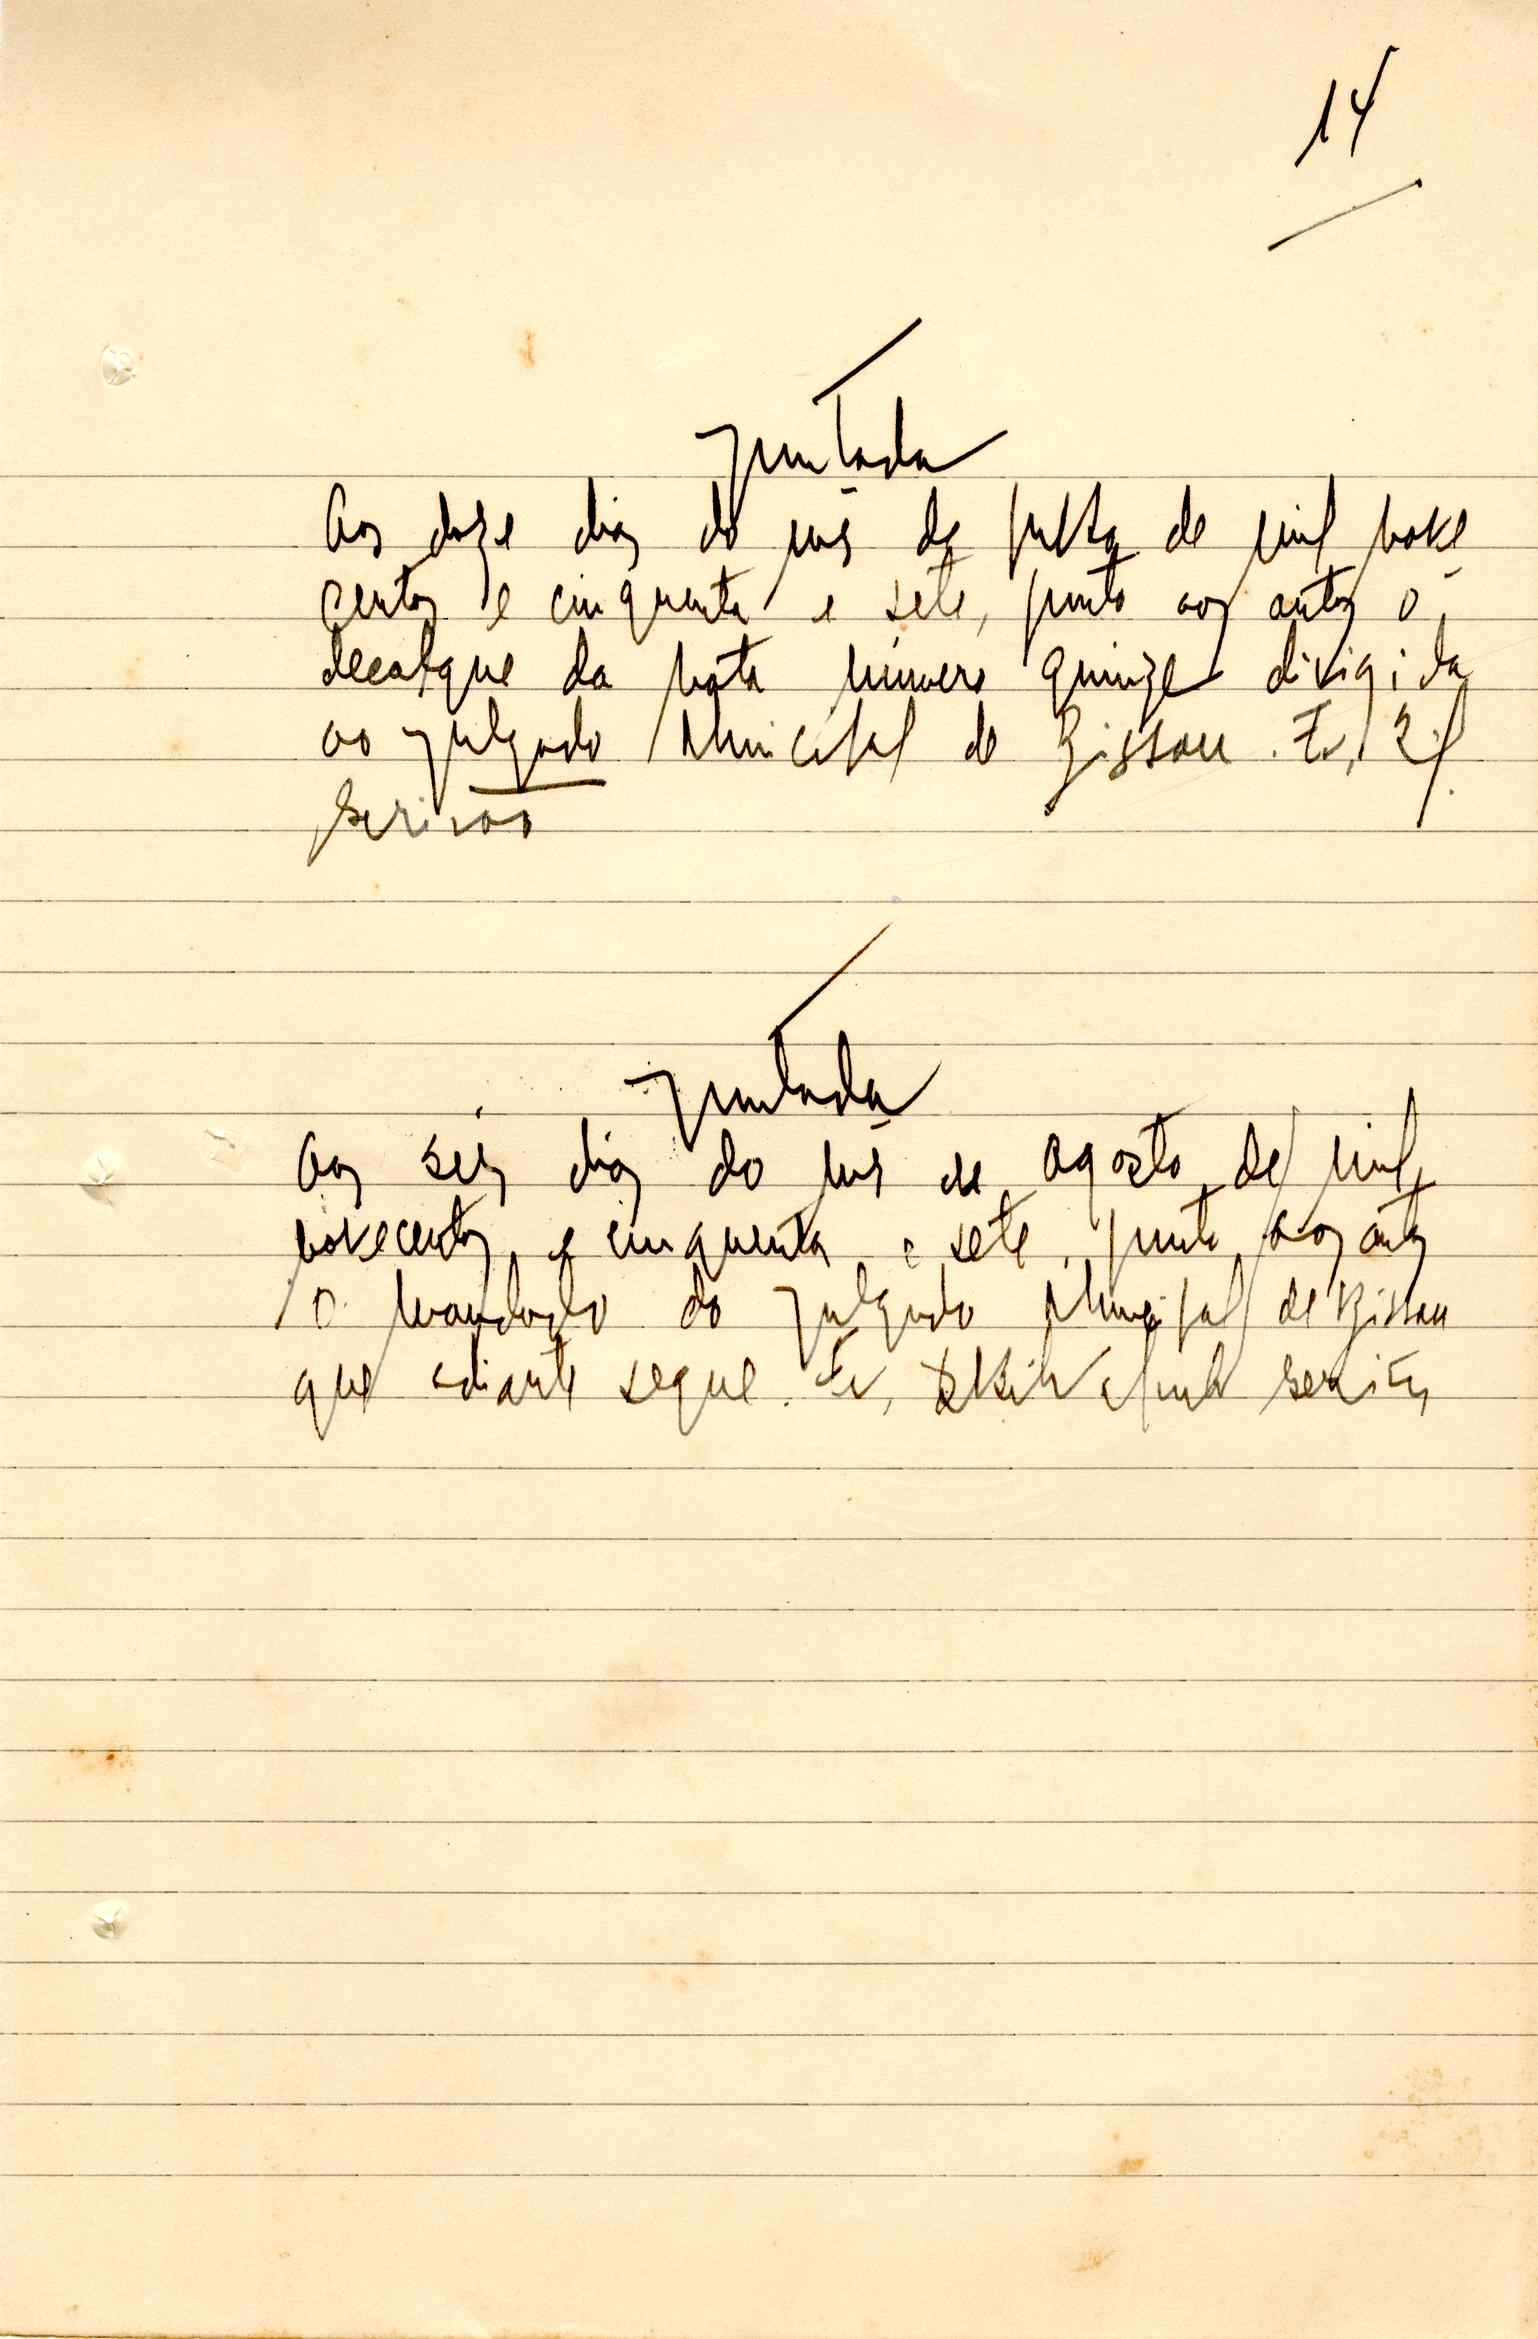 14
Juntada
Aos doze dias do mês de julho de mil nove
centos e cinquenta e sete, junto aos autos o
decalque da nota número quinze dirigida
ao Julgado Municipal de Bissau. Eu,
escrivão
Juntada
Aos seis dias do mês de Agosto de mil
novecentos e cinquenta e sete, junto aos autos
o mandado do Julgado Municipal de Bissau
que adiante segue. Eu, escrivão